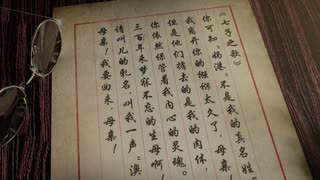 《七子之歌》
你可知“妈港”不是我的真名姓
我离开你的襁褓太久了，母亲！
但是他们掳去的是我的肉体，
你依然保管着我内心的灵魂。
三百年来梦寐不忘的生母啊！
请叫儿的乳名，叫我一声“澳
母亲！我要回来，母亲！